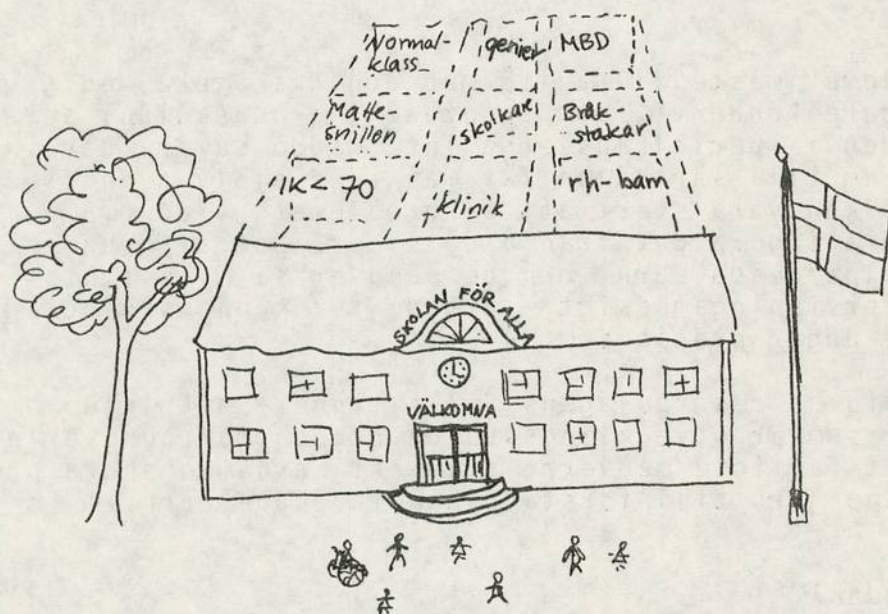 Normal-
klass
genier
MBD
Matte-
snillen
skolkare
Bråk-
stakar
IK < 70
klinik
rh-barn
SKOLAN FÖR ALLA
VÄLKOMNA